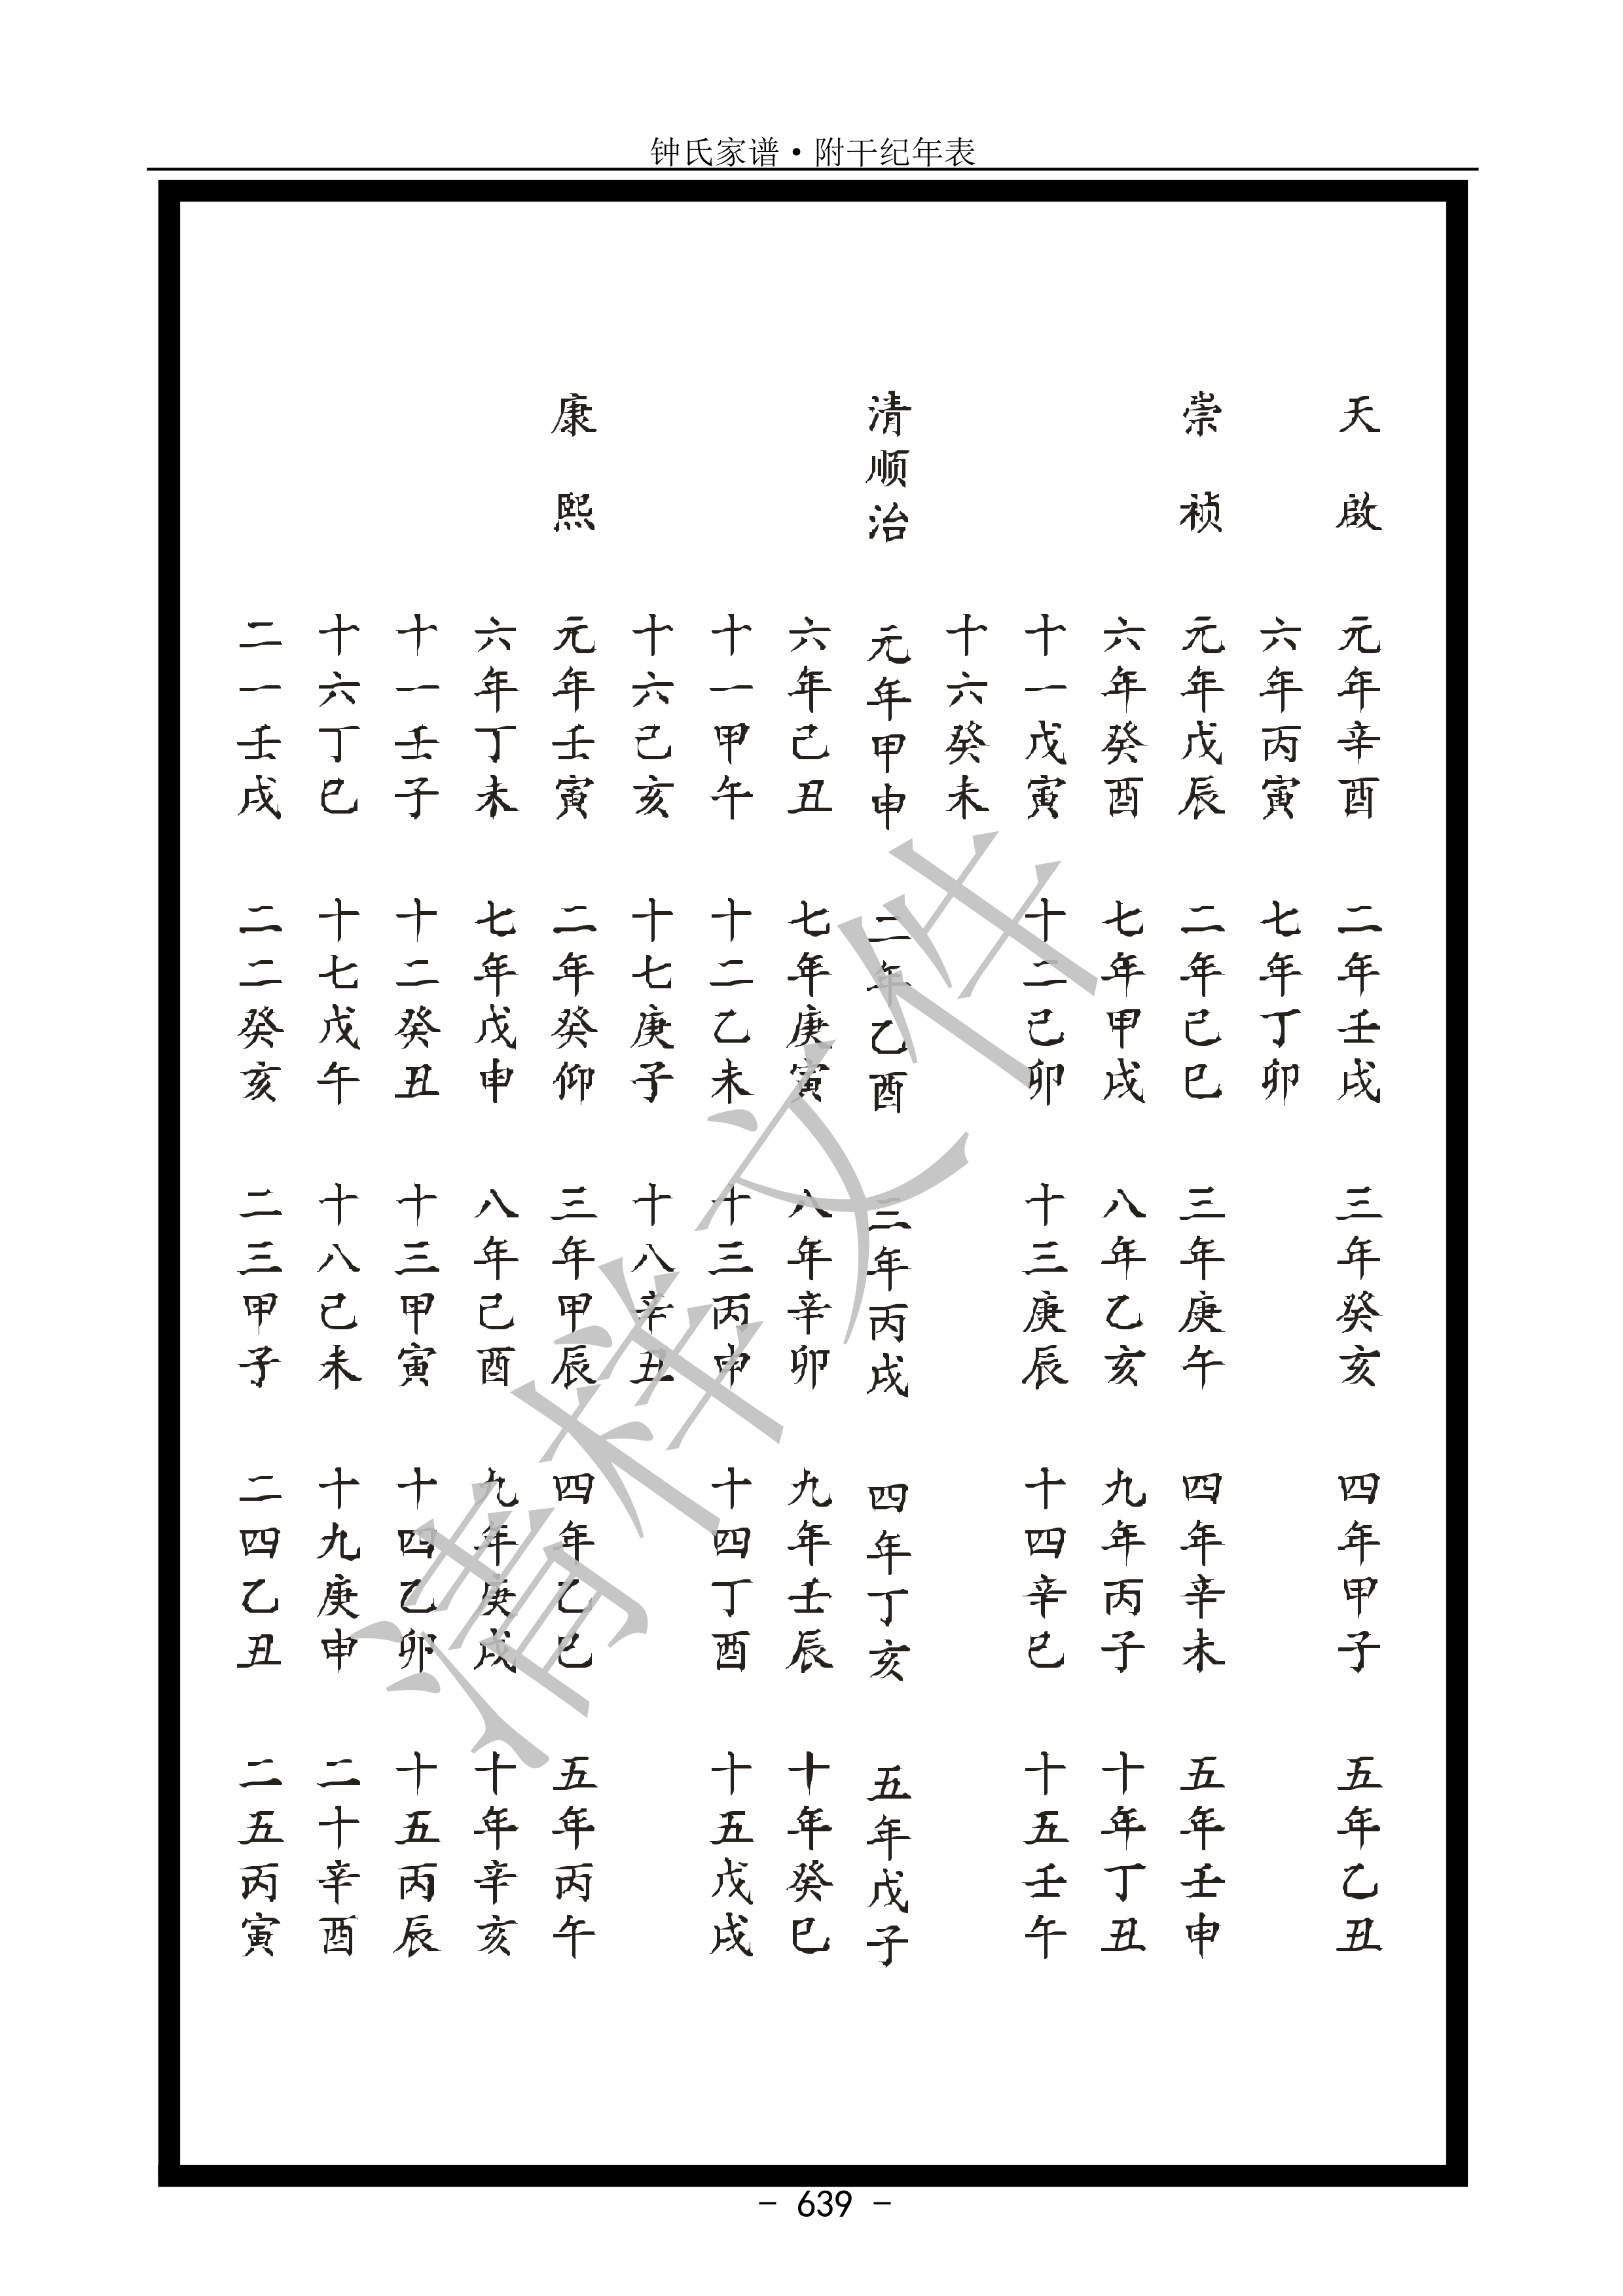 钟氏家谱·附干纪年表
天啟 元年辛酉 二年壬戌 三年癸亥 四年甲子 五年乙丑
六年丙寅 七年丁卯
崇祯 元年戊辰 二年己巳 三年庚午 四年辛未 五年壬申
六年癸酉 七年甲戌 八年乙亥 九年丙子 十年丁丑
十一戊寅 十二己卯 十三庚辰 十四辛巳 十五壬午
十六癸未
清顺治 元年甲申 二年乙酉 三年丙戌 四年丁亥 五年戊子
六年己丑 七年庚寅 八年辛卯 九年壬辰 十年癸巳
十一甲午 十二乙未 十三丙申 十四丁酉 十五戊戌
十六己亥 十七庚子 十八辛丑
康熙 元年壬寅 二年癸仰 三年甲辰 四年乙巳 五年丙午
六年丁未 七年戊申 八年己酉 九年庚戌 十年辛亥
十一壬子 十二癸丑 十三甲寅 十四乙卯 十五丙辰
十六丁巳 十七戊午 十八己未 十九庚申 二十辛酉
二一壬戌 二二癸亥 二三甲子 二四乙丑 二五丙寅
清样文件
- 639 -